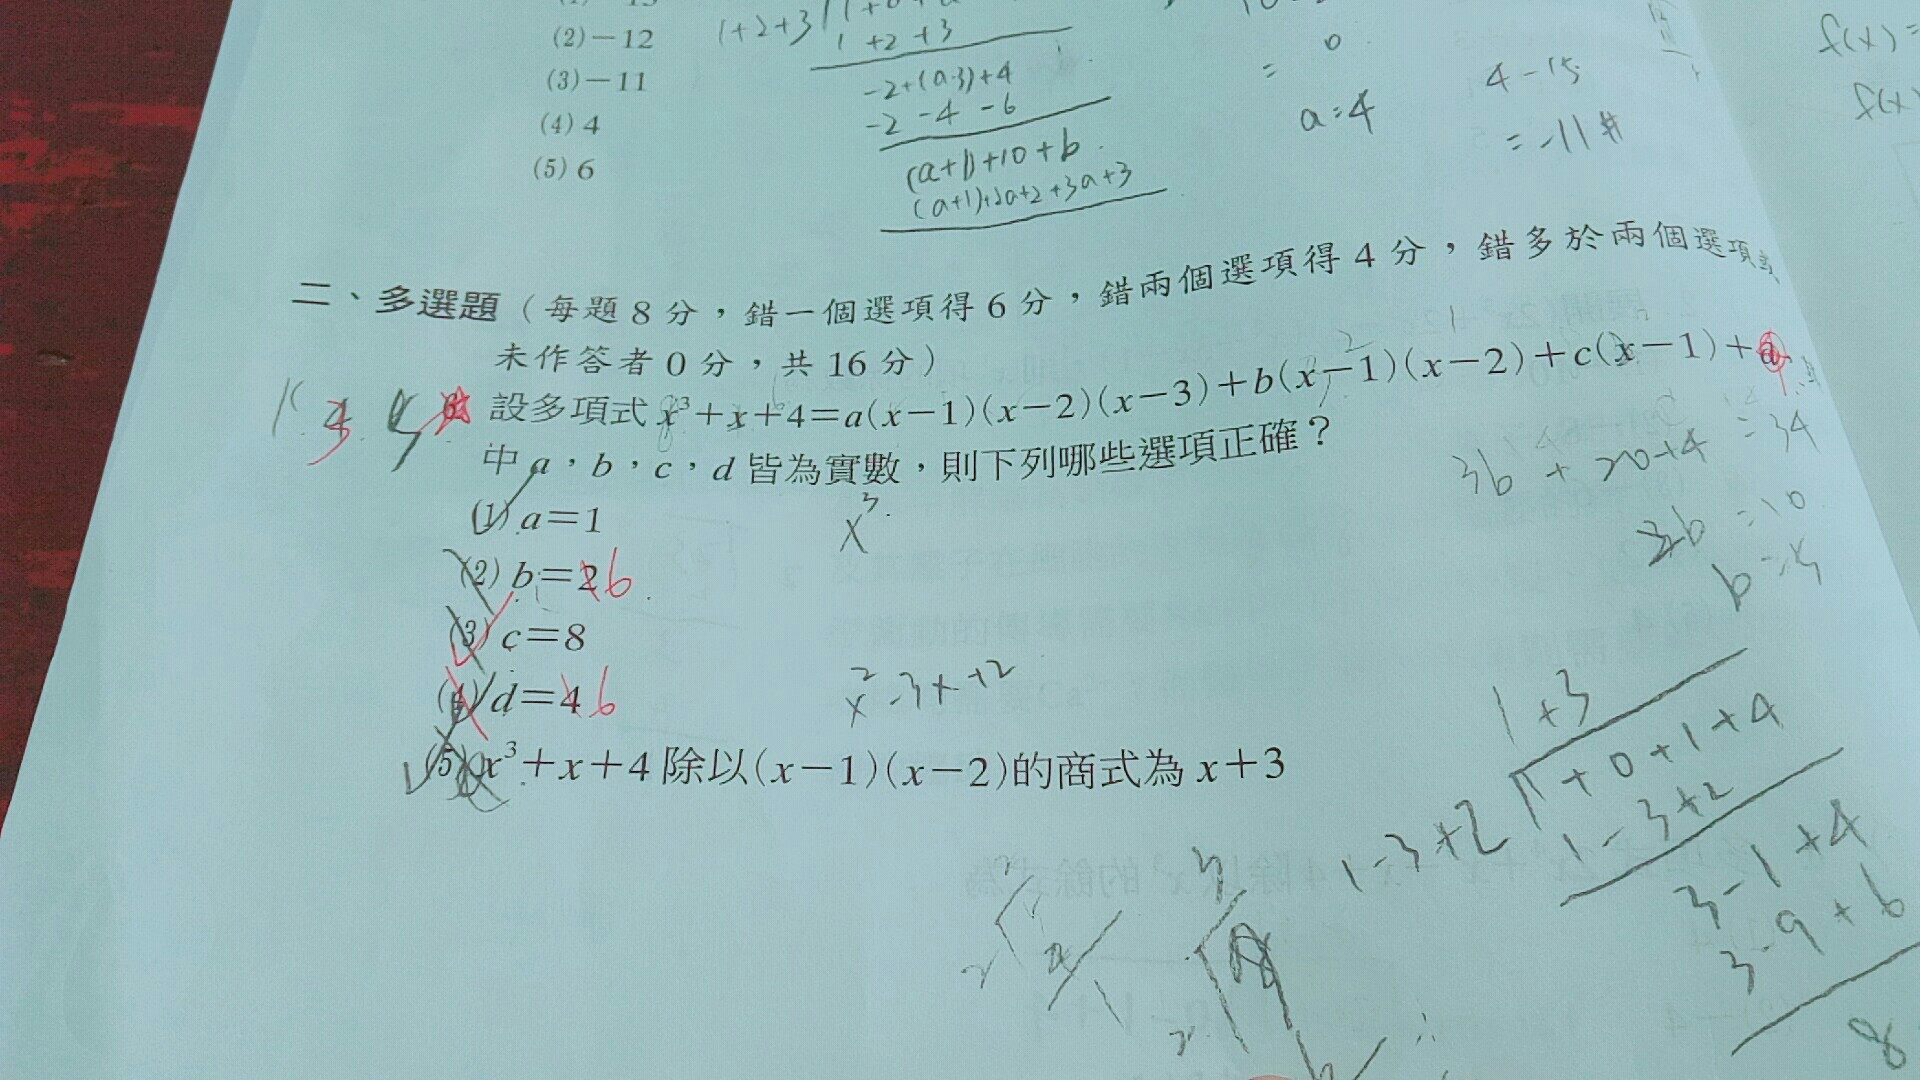 (2)−12
(3)−11
(4) 4
(5) 6
1+2+3
1 +2 +3
-2+(a-3)+4
-2 -4 -6
(a+1)+10+b
(a+1)+2a+2+3a+3
= 0
a=4
4-15
= -11 #
f(x)=
f(x)
二、多選題（每題 8 分，錯一個選項得 6 分，錯兩個選項得 4 分，錯多於兩個選項或
未作答者 0 分，共 16 分）
設多項式 x³+x+4=a(x−1)(x−2)(x−3)+b(x−1)(x−2)+c(x−1)+d
中 a，b，c，d 皆為實數，則下列哪些選項正確？
(1) a=1
(2) b=2 6
(3) c=8
(4) d=4 6
(5) x³+x+4 除以(x−1)(x−2)的商式為 x+3
x³
x²-3x+2
3b + 20+4 = 34
3b = 10
1+3
1-3+2
1+0+1+4
1-3+2
3-1+4
3-9+6
8